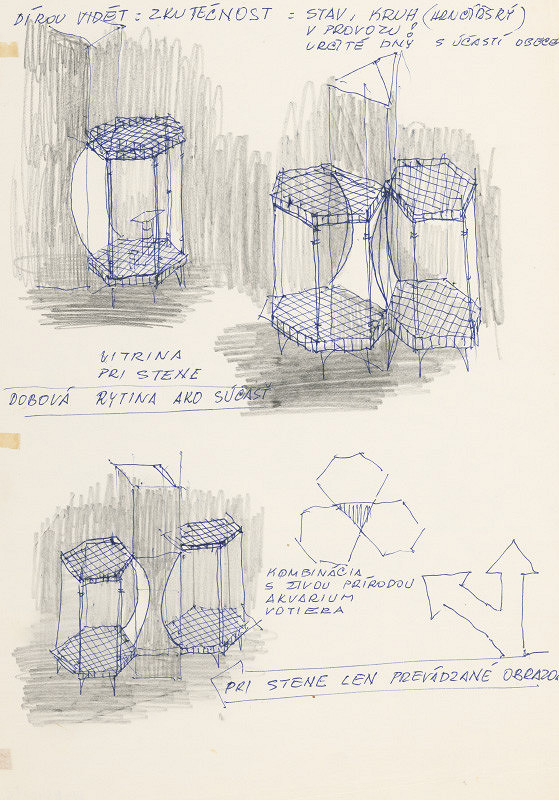 DÍROU VIDĚT = ZKUTEČNOST = STAV, KRUH (HRNČÍŘSKÝ)
V PROVOZU!
URČITÉ DNY S ÚČASTÍ OBECE
VITRINA
PRI STENE
DOBOVÁ RYTINA AKO SÚČASŤ
KOMBINÁCIA
S ŽIVOU PRÍRODOU
AKVARIUM
VOTIERA
PRI STENE LEN PREVÁDZANÉ OBRAZO